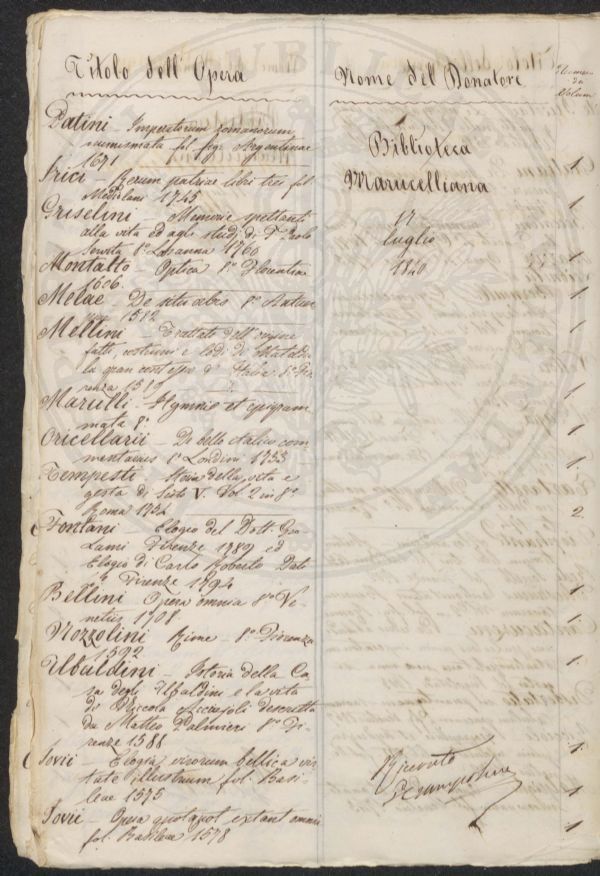 Titolo dell'Opera
Nome del Donatore
Numero
dei
Volumi
Patini - Imperatorum romanorum
numismata fol. fig. Argentinae
1671
Frici - Rerum patriae libri tres fol.
Mediolani 1745
Griselini - Memorie spettanti
alla vita ed agli studj di F. Paolo
Servita 8° Losanna 1760
Montalto - Optica 8° Florentiae
1606
Melae - De situ orbis 8° Antuer
1582
Mellini - Trattato dell'origine
fatti, costumi e lodi di Matalda
la gran contessa d'Italia 8° Fi-
renze 1589
Marulli - Hymnis et epigram
mata 8°
Oricellarii - De bello italico com
mentarius 1° Londini 1733
Tempesti - Storia della vita e
gesta di Sisto V. Vol. 2 in 8°
Roma 1754
Fontani Elogio del Dott. Gio
Lami Firenze 1789 ed
Elogio di Carlo Roberto Dati
Firenze 1794
Bellini Opera omnia 8° Ve-
netiis 1708
Nozzolini Rime - 8° Firenze
1592
Ubaldini - Istoria della Ca-
sa degli Ubaldini e la vita
di Niccola Acciajoli descritta
da Matteo Palmieri 8° Fi-
renze 1588
Jovii - Elogia virorum bellica vir
tute illustrium fol. Basi-
leae 1575
Jovii - Opera quotquot extant omnia
fol. Basileae 1578
Biblioteca
Marucelliana
17
luglio
1840
Ricevuto
1
1
1
1
1
1
1
1
2
1
1
1
1
1
1